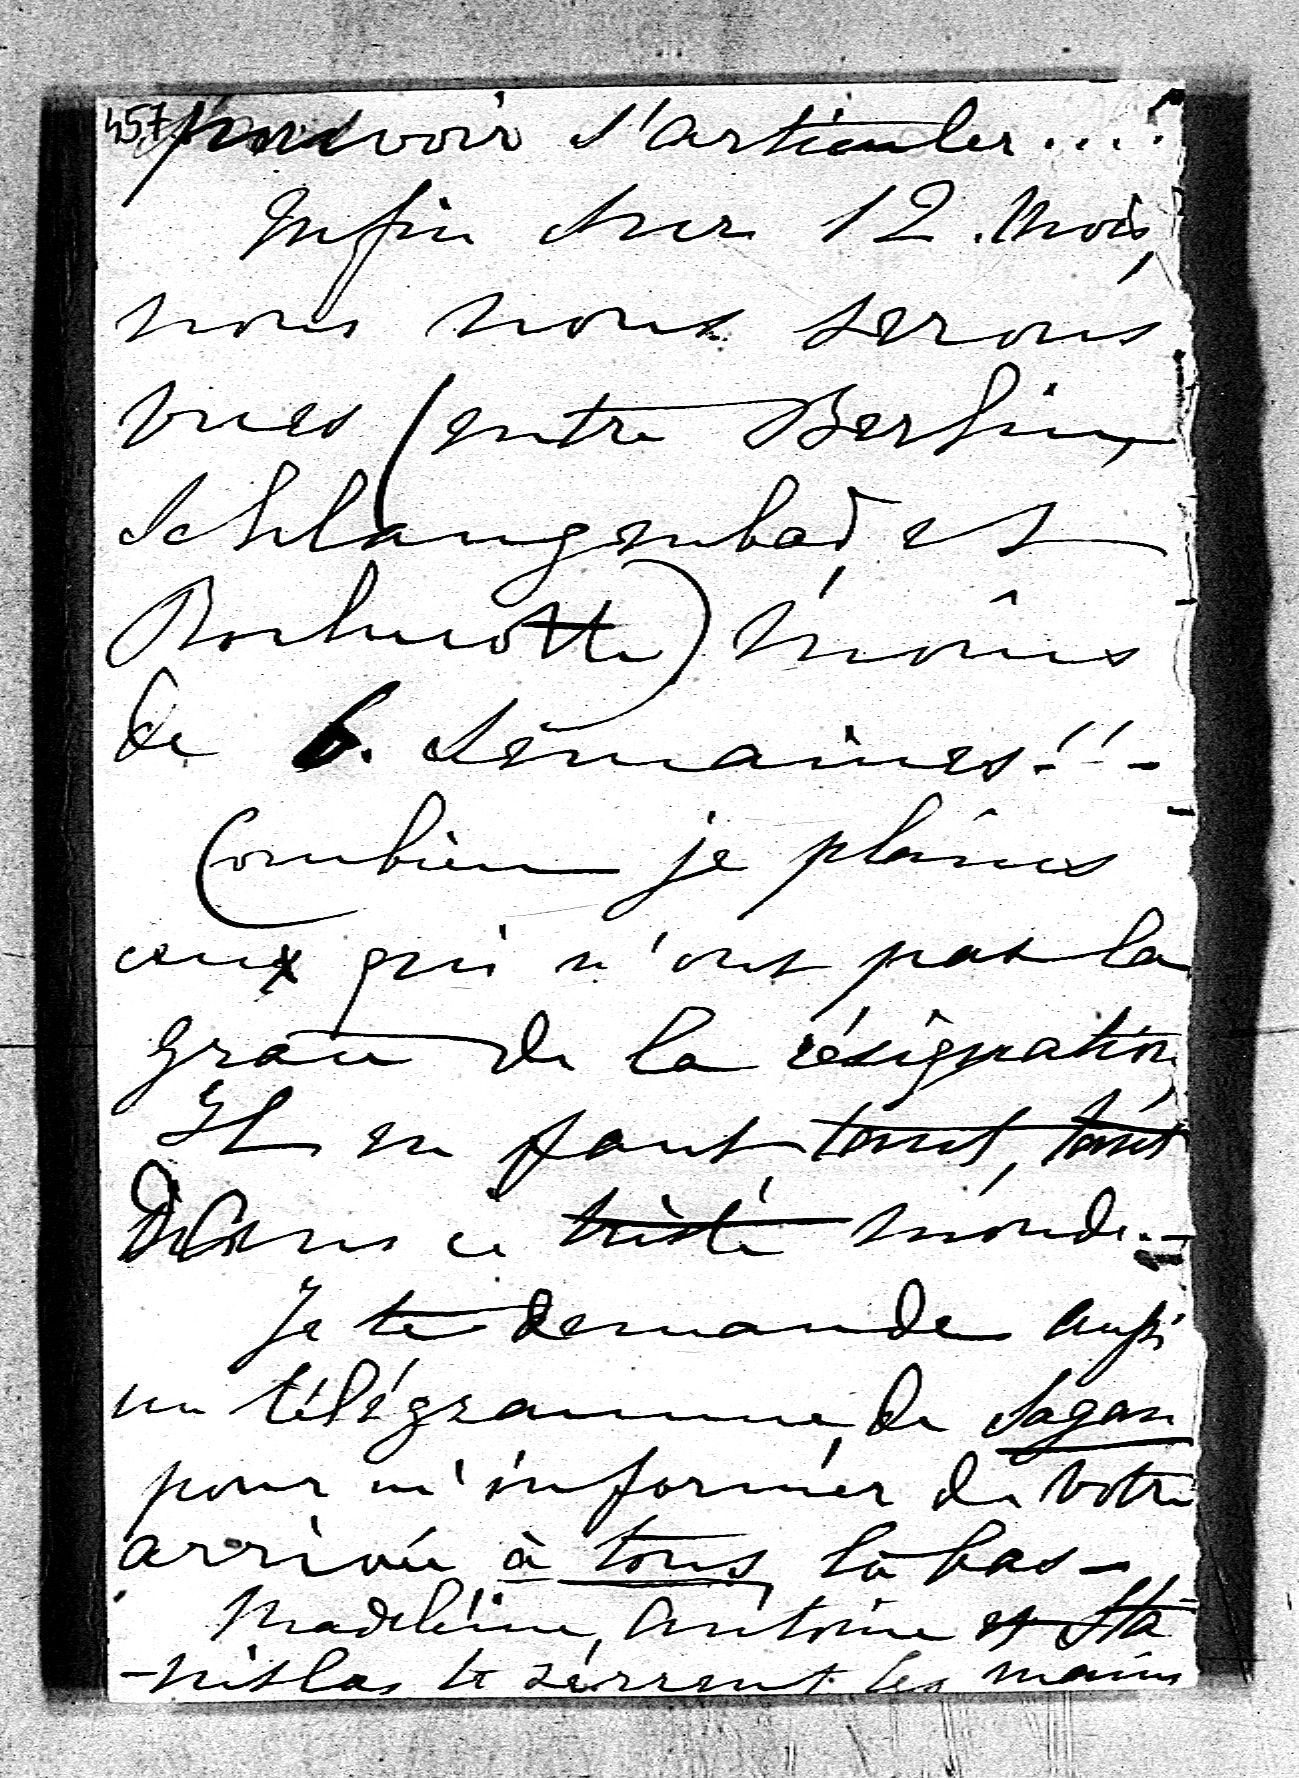 457
pouvoir s'articuler....
Enfin sur 12. mois,
nous nous serons
vues (entre Berlin,
Schlangenbad, et
Rochecotte) moins
de 6. semaines!! -
Combien je plains
ceux qui n'ont pas la
grâce de la résignation,
Il en faut tant, tant
dans ce triste monde. -
Je te demande aussi
un télégramme, de Sagan
pour m'informer de votre
arrivée à tous là bas -
Madeleine, Antoine et Sta
-nislas te serrent les mains